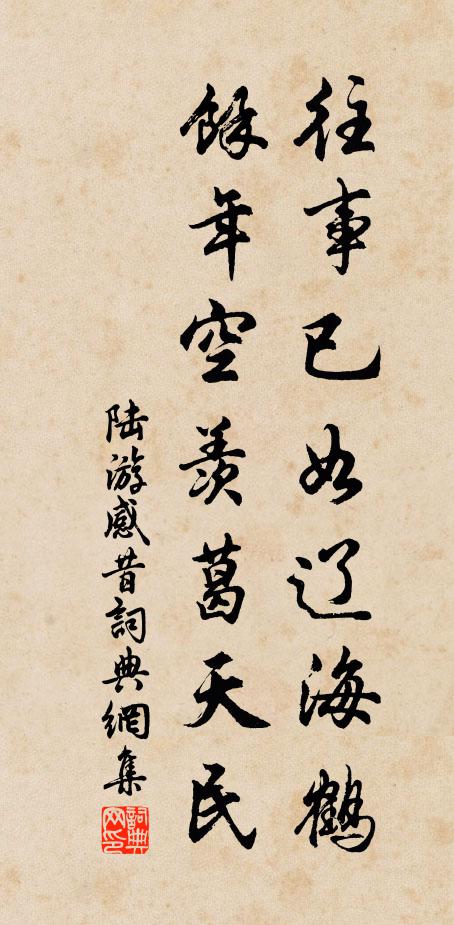 往事已如辽海鹤
馀年空羡葛天民
陆游感昔詞典網集
詞典网印